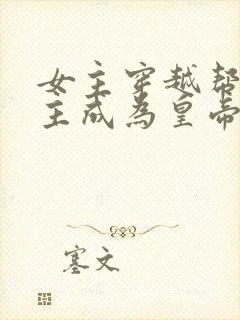 女主穿越帮
主成为皇帝
塞文